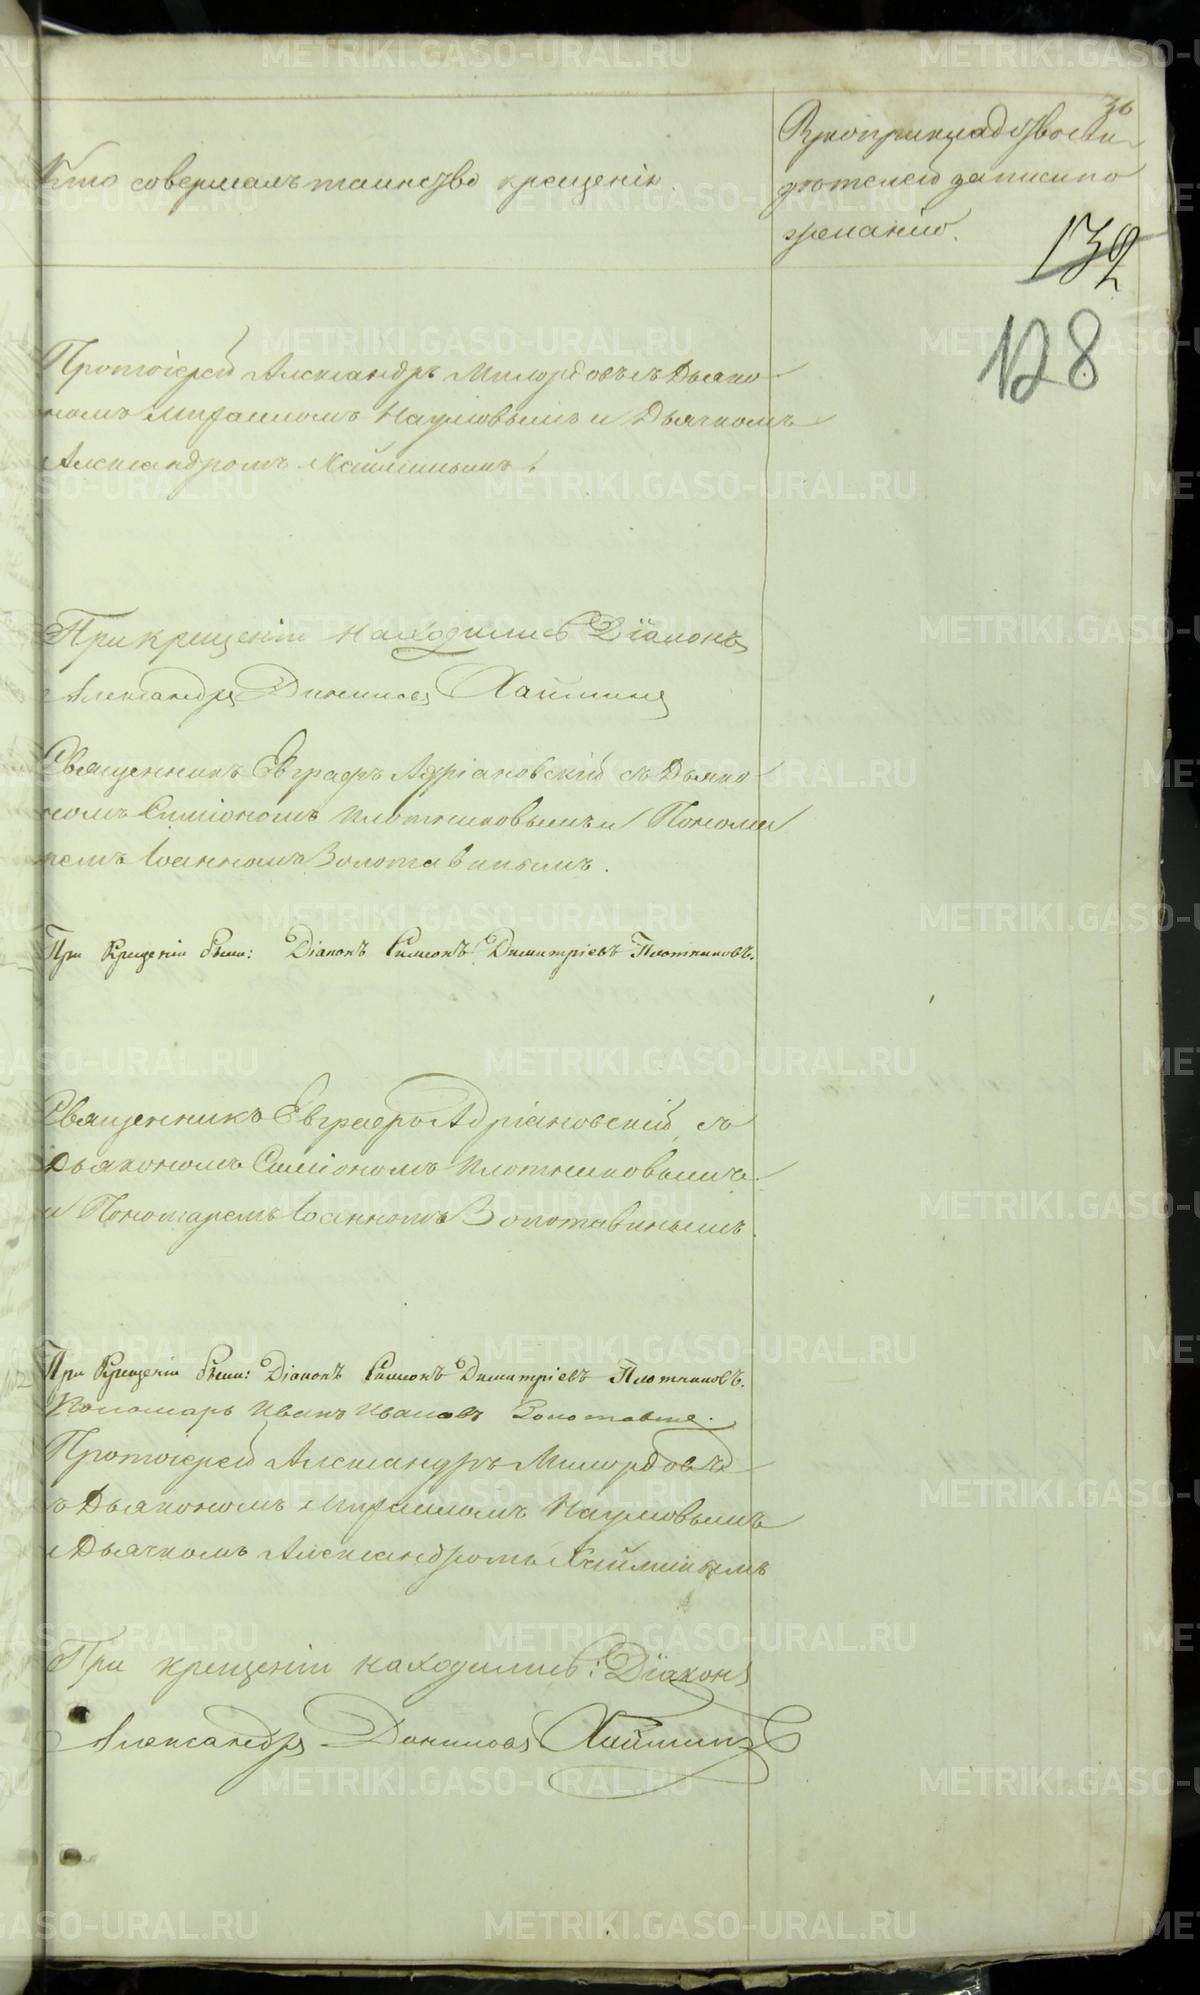 36
Кто совершалъ таинство крещенія.
Рукоприкладство свиде
тельствъ записи по
желанію.
132
128
Протоіерей Александръ Милордовъ съ Дьяко
номъ Наумовымъ и Дьячкомъ
Александромъ Хайминымъ.
При крещеніи находились Діаконъ
Александръ Даниловъ Хайминъ
Священникъ Евграфъ Адріановскій съ Дьяко
номъ Симіономъ Плотниковымъ и Понома
ремъ Іоанномъ Золотавинымъ.
При Крещеніи были: Діаконъ Симеонъ Димитріевъ Плотниковъ.
Священникъ Евграфъ Адріановскій съ
Дьякономъ Симіономъ Плотниковымъ
и Пономаремъ Іоанномъ Золотавинымъ.
При Крещеніи были: Діаконъ Симеонъ Димитріевъ Плотниковъ.
Пономарь Иванъ Ивановъ
Протоіерей Александръ Милордовъ
съ Дьякономъ Наумовымъ
и Дьячкомъ Александромъ Хайминымъ
При крещеніи находились: Діаконъ
Александръ Даниловъ Хайминъ
METRIKI.GASO-URAL.RU